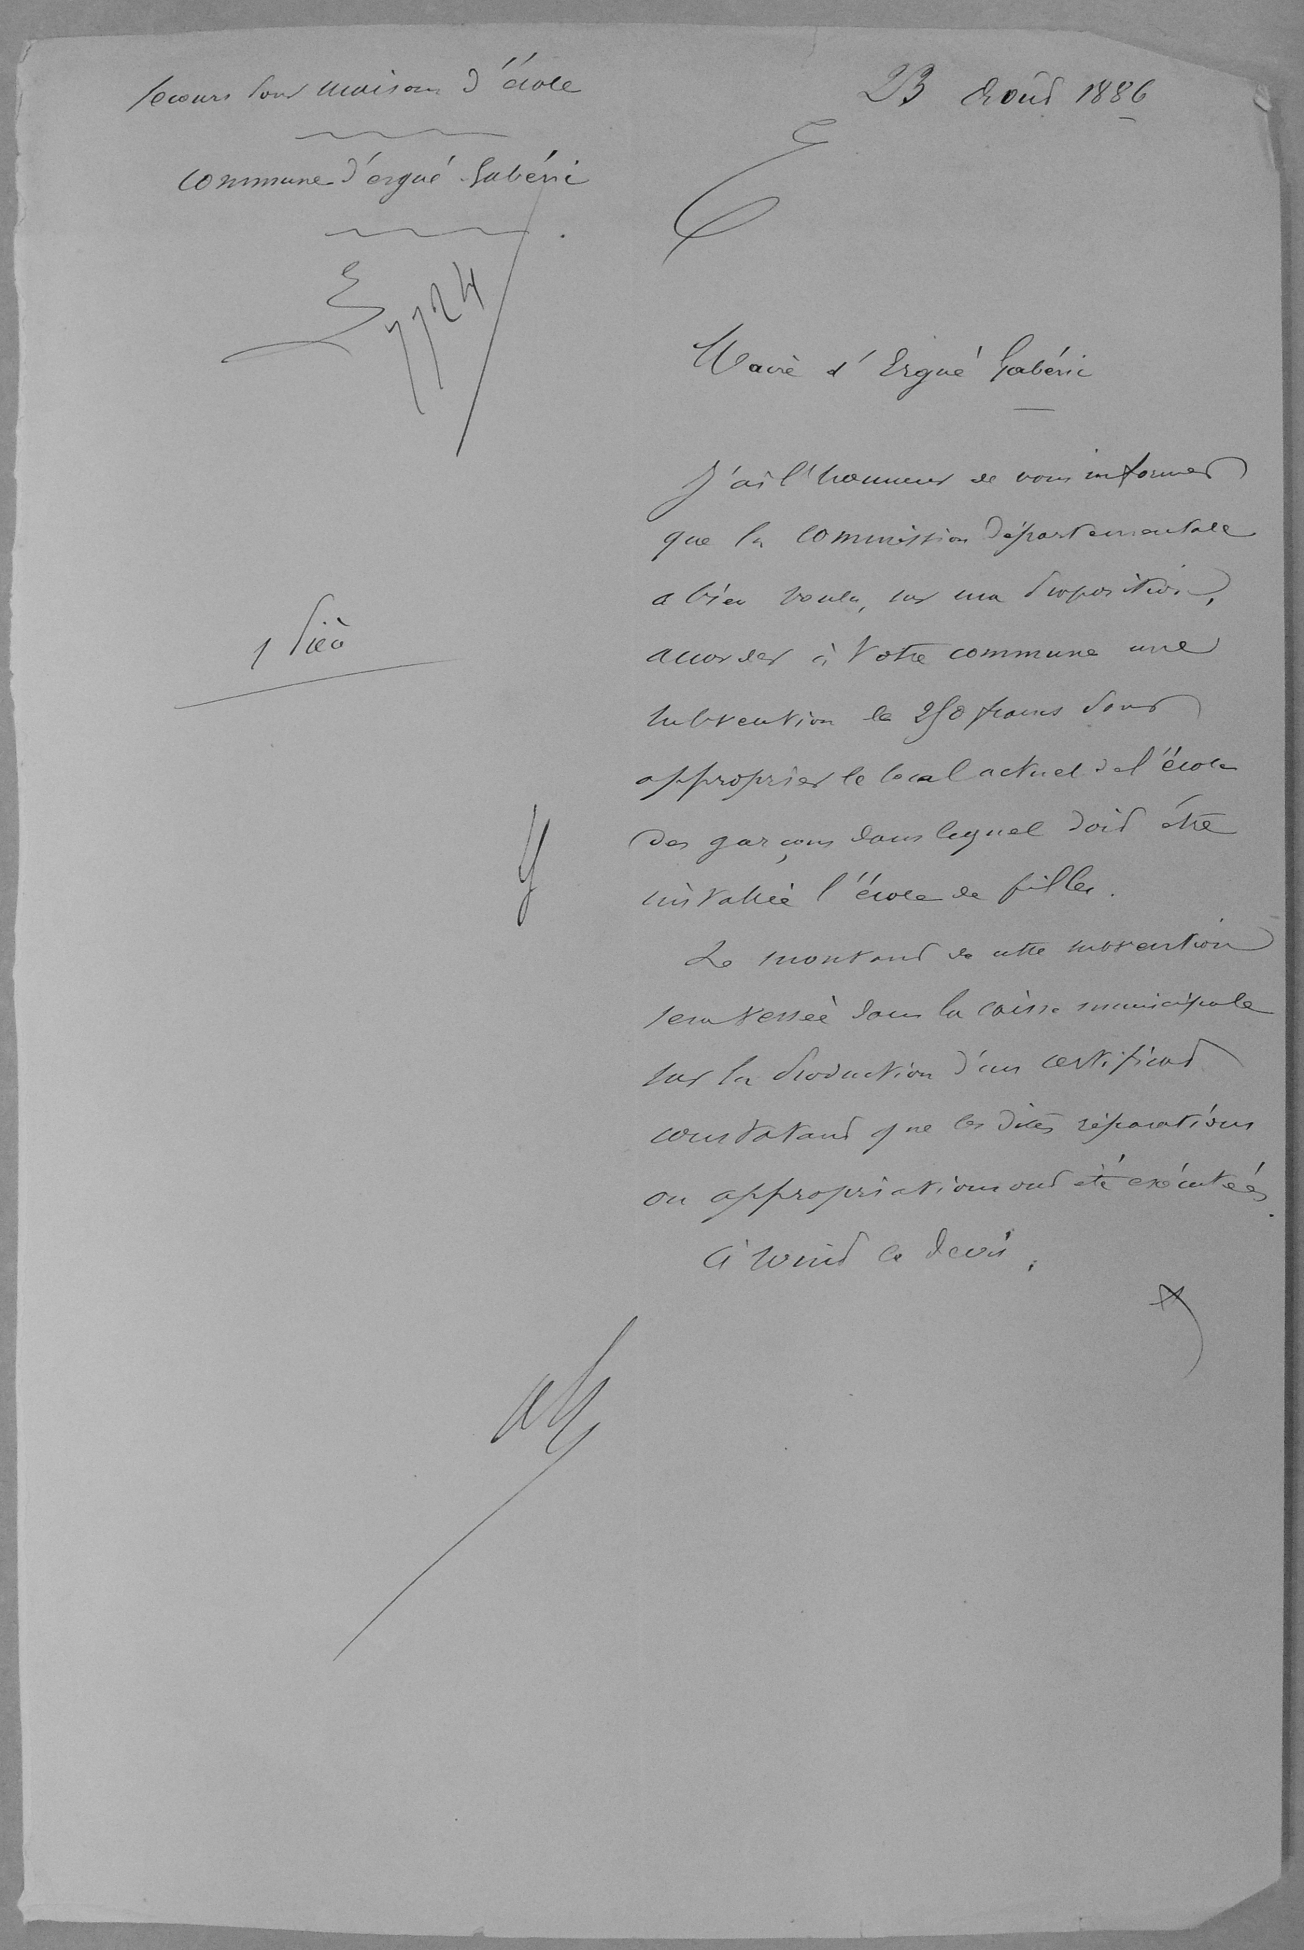 Secours pour maison d'école
commune d'ergué Gabéric
7724
1 pièce
23 Août 1886
Maire d'Ergué Gabéric
J'ai l'honneur de vous informer
que la commission départementale
a bien voulu, sur ma proposition,
accorder à votre commune une
subvention de 250 francs pour
approprier le local actuel de l'école
des garçons dans lequel doit être
installée l'école de filles.
Le montant de cette subvention
sera versée dans la caisse municipale
sur la production d'un certificat
constatant que les dites réparations
ou appropriations ont été exécutées.
Ci joint le devis.